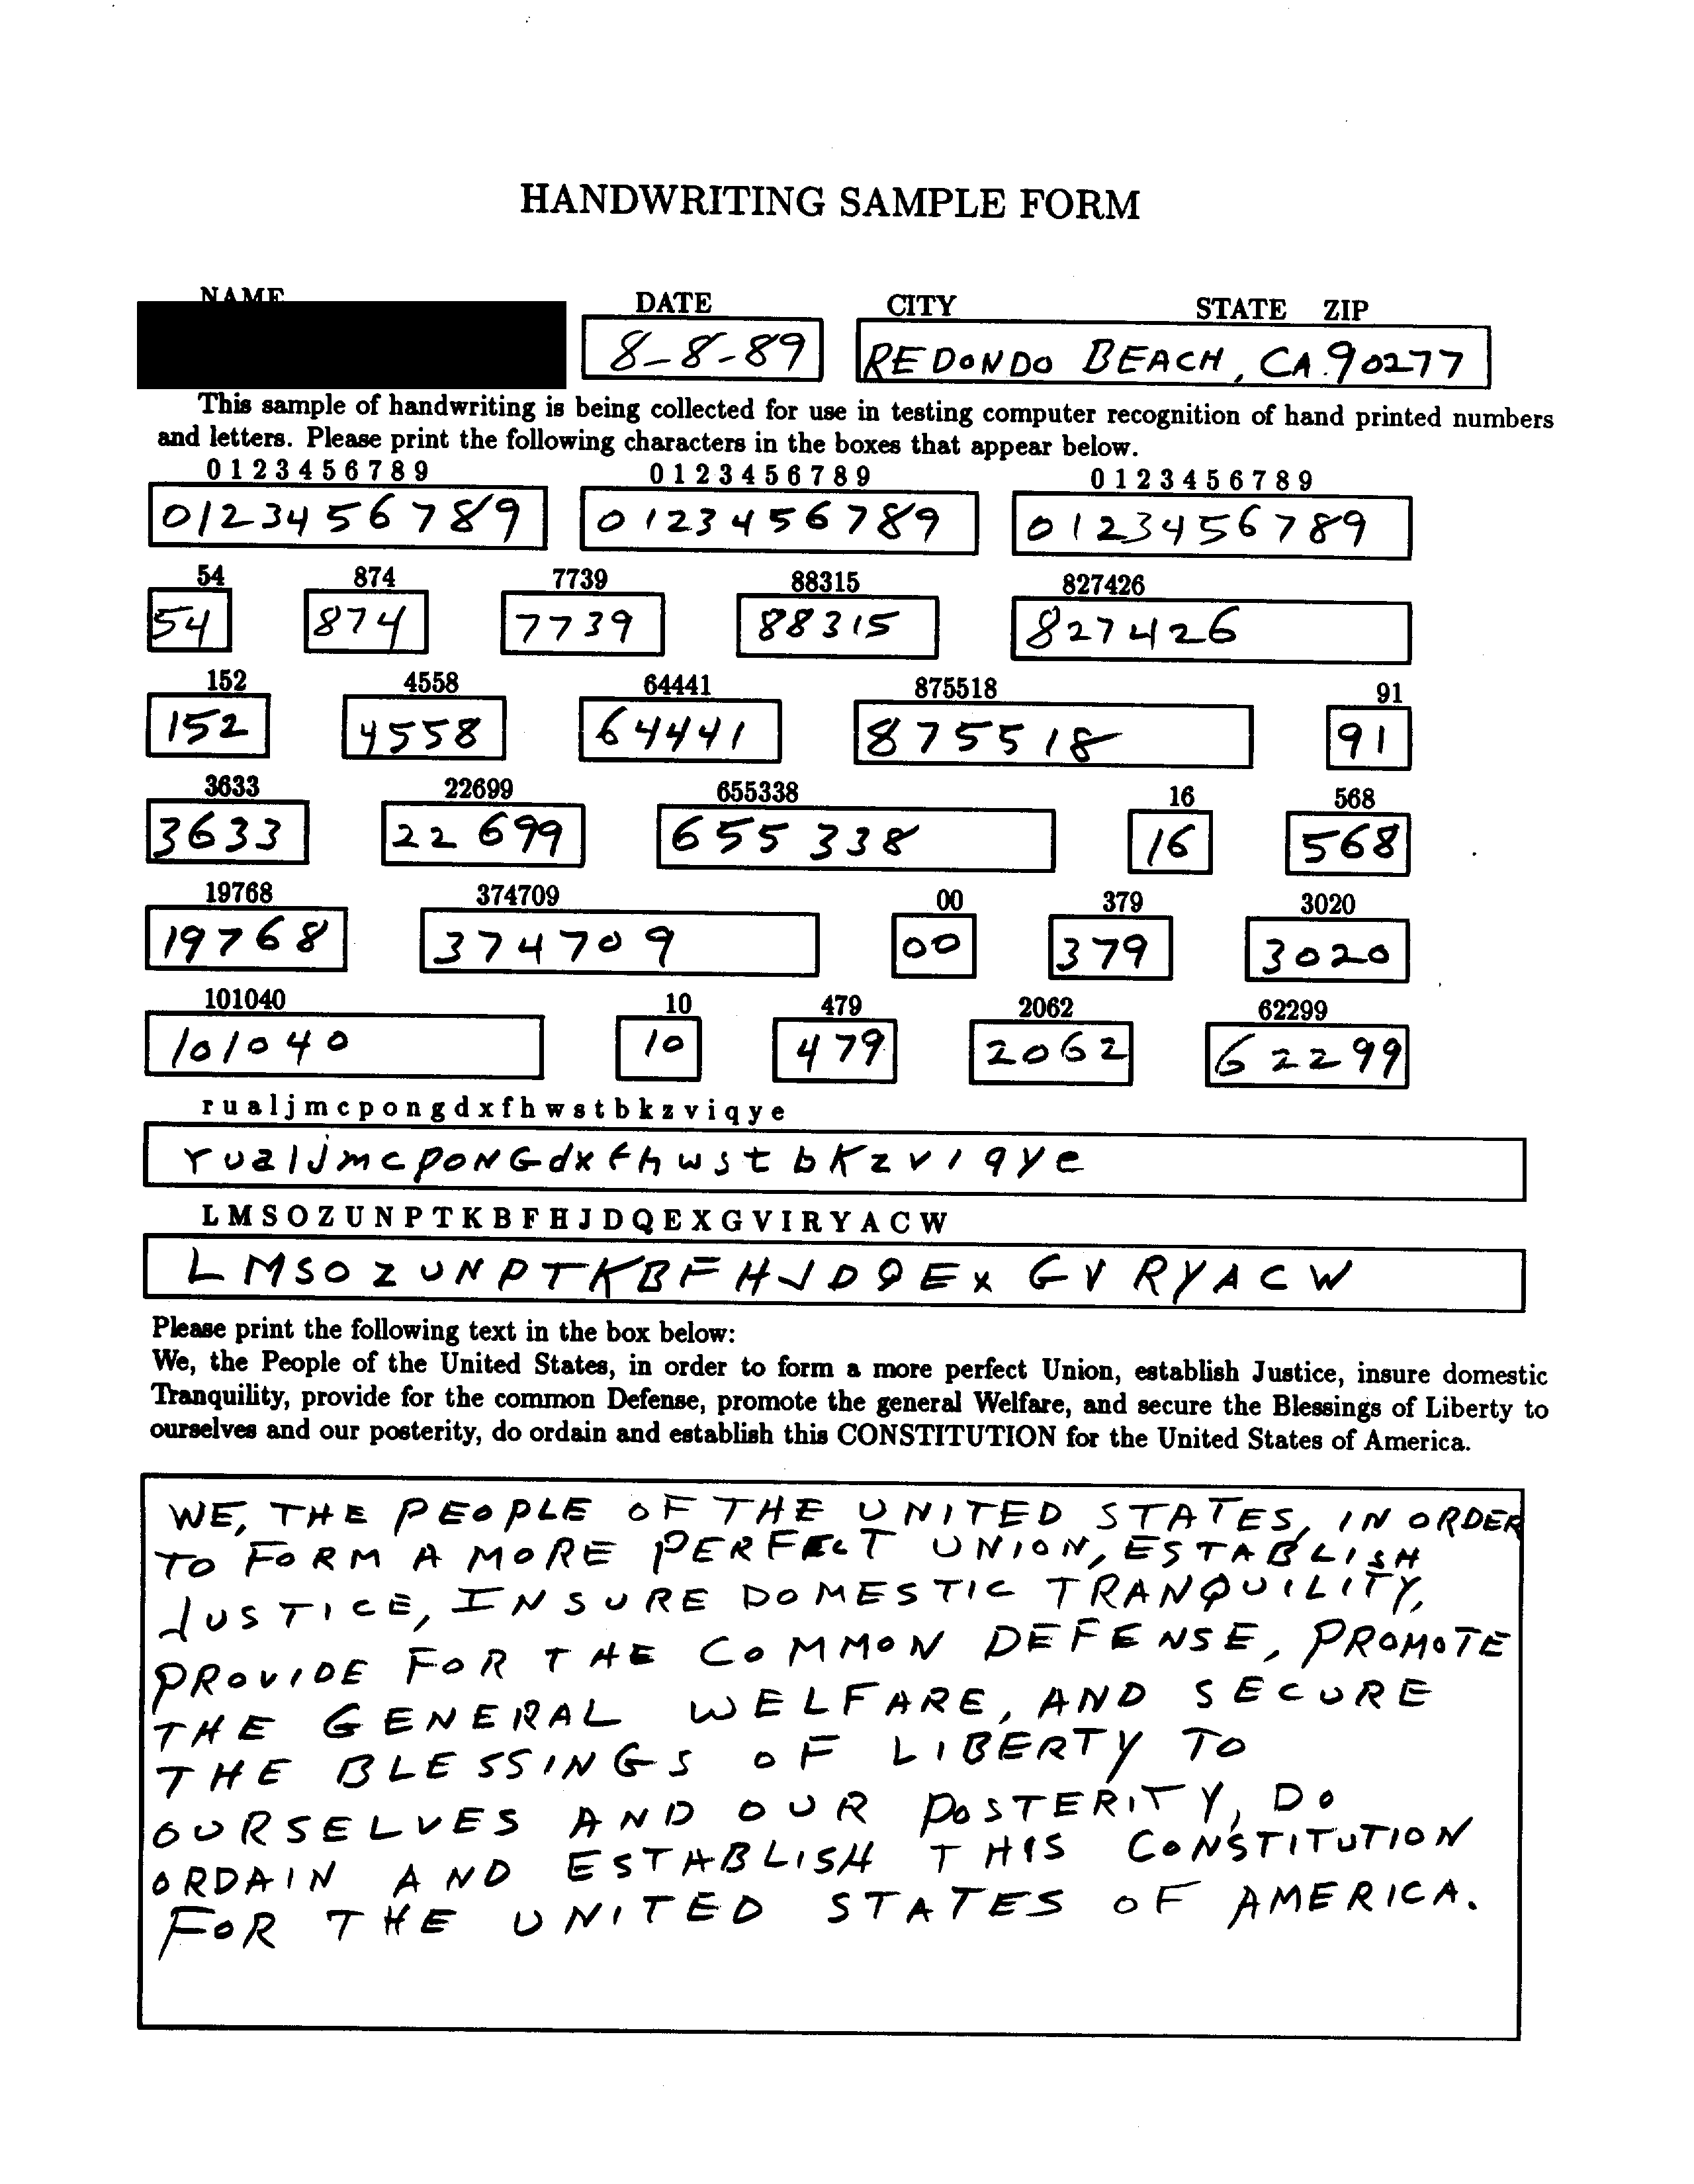 HANDWRITING SAMPLE FORM
NAME DATE CITY STATE ZIP
8-8-89 REDONDO BEACH, CA 90277
This sample of handwriting is being collected for use in testing computer recognition of hand printed numbers
and letters. Please print the following characters in the boxes that appear below.
0 1 2 3 4 5 6 7 8 9 0 1 2 3 4 5 6 7 8 9 0 1 2 3 4 5 6 7 8 9
0123456789 0123456789 0123456789
54 874 7739 88315 827426
54 874 7739 88315 827426
152 4558 64441 875518 91
152 4558 64441 875518 91
3633 22699 655338 16 568
3633 22699 655338 16 568
19768 374709 00 379 3020
19768 374709 00 379 3020
101040 10 479 2062 62299
101040 10 479 2062 62299
r u a l j m c p o n g d x f h w s t b k z v i q y e
r u a l j m c p o N G d x f h w s t b K z v i q y e
L M S O Z U N P T K B F H J D Q E X G V I R Y A C W
L M S O Z U N P T K B F H J D Q E X G V R Y A C W
Please print the following text in the box below:
We, the People of the United States, in order to form a more perfect Union, establish Justice, insure domestic
Tranquility, provide for the common Defense, promote the general Welfare, and secure the Blessings of Liberty to
ourselves and our posterity, do ordain and establish this CONSTITUTION for the United States of America.
WE, THE PEOPLE OF THE UNITED STATES, IN ORDER
TO FORM A MORE PERFECT UNION, ESTABLISH
JUSTICE, INSURE DOMESTIC TRANQUILITY,
PROVIDE FOR THE COMMON DEFENSE, PROMOTE
THE GENERAL WELFARE, AND SECURE
THE BLESSINGS OF LIBERTY TO
OURSELVES AND OUR POSTERITY, DO
ORDAIN AND ESTABLISH THIS CONSTITUTION
FOR THE UNITED STATES OF AMERICA.